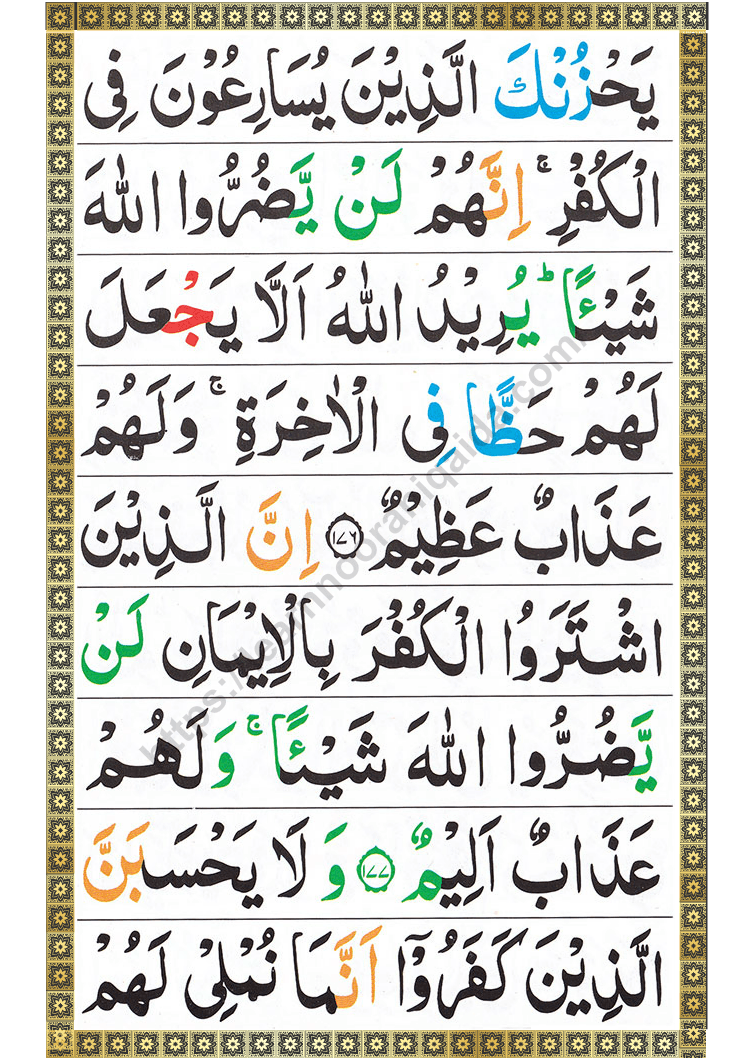 يَحْزُنْكَ الَّذِيْنَ يُسَارِعُوْنَ فِى
الْكُفْرِ ۚ اِنَّهُمْ لَنْ يَّضُرُّوا اللّٰهَ
شَيْـًٔا ؕ يُرِيْدُ اللّٰهُ اَلَّا يَجْعَلَ
لَهُمْ حَظًّا فِى الْاٰخِرَةِ ۚ وَلَهُمْ
عَذَابٌ عَظِيْمٌ ۝۱۷۶ اِنَّ الَّذِيْنَ
اشْتَرَوُا الْكُفْرَ بِالْاِيْمَانِ لَنْ
يَّضُرُّوا اللّٰهَ شَيْـًٔا ۚ وَلَهُمْ
عَذَابٌ اَلِيْمٌ ۝۱۷۷ وَ لَا يَحْسَبَنَّ
الَّذِيْنَ كَفَرُوْۤا اَنَّمَا نُمْلِىْ لَهُمْ
https://learnnooraniqaida.com/